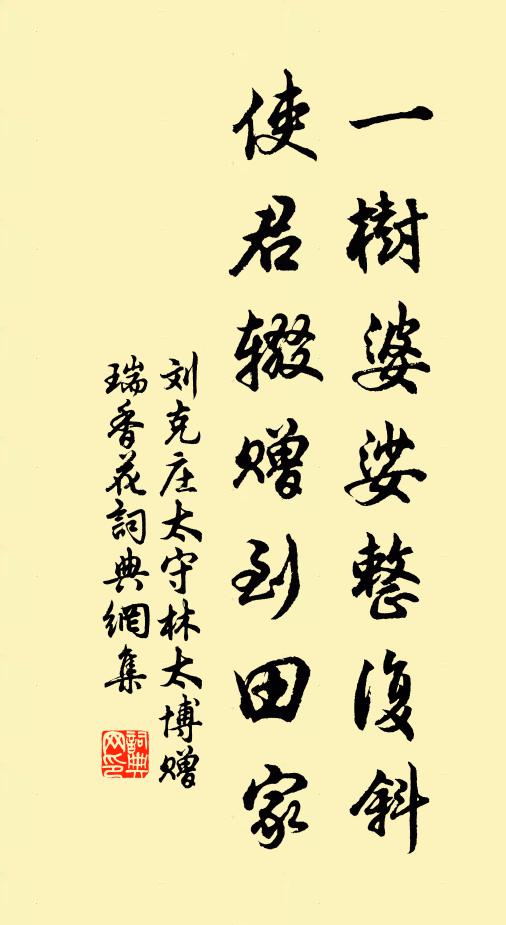 一樹婆娑整復斜
使君辍贈到田家
刘克庄太守林太博贈
瑞香花詞典網集
詞典
网印